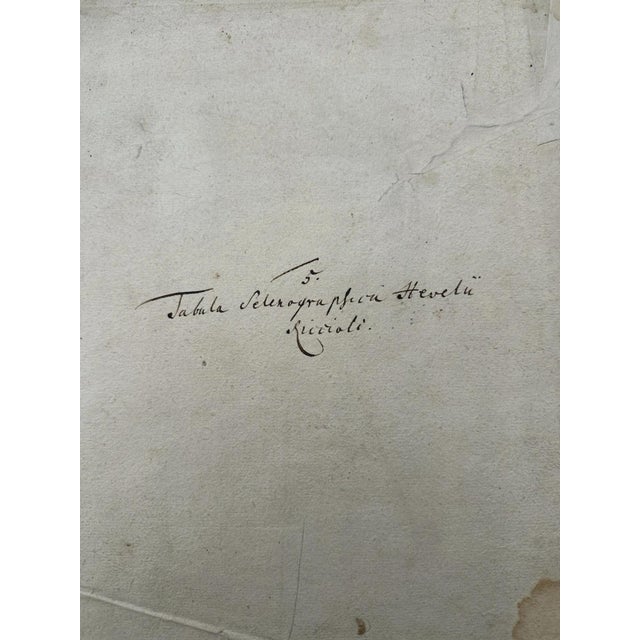 5.
Tabula Selenographica Hevelii
Riccioli.